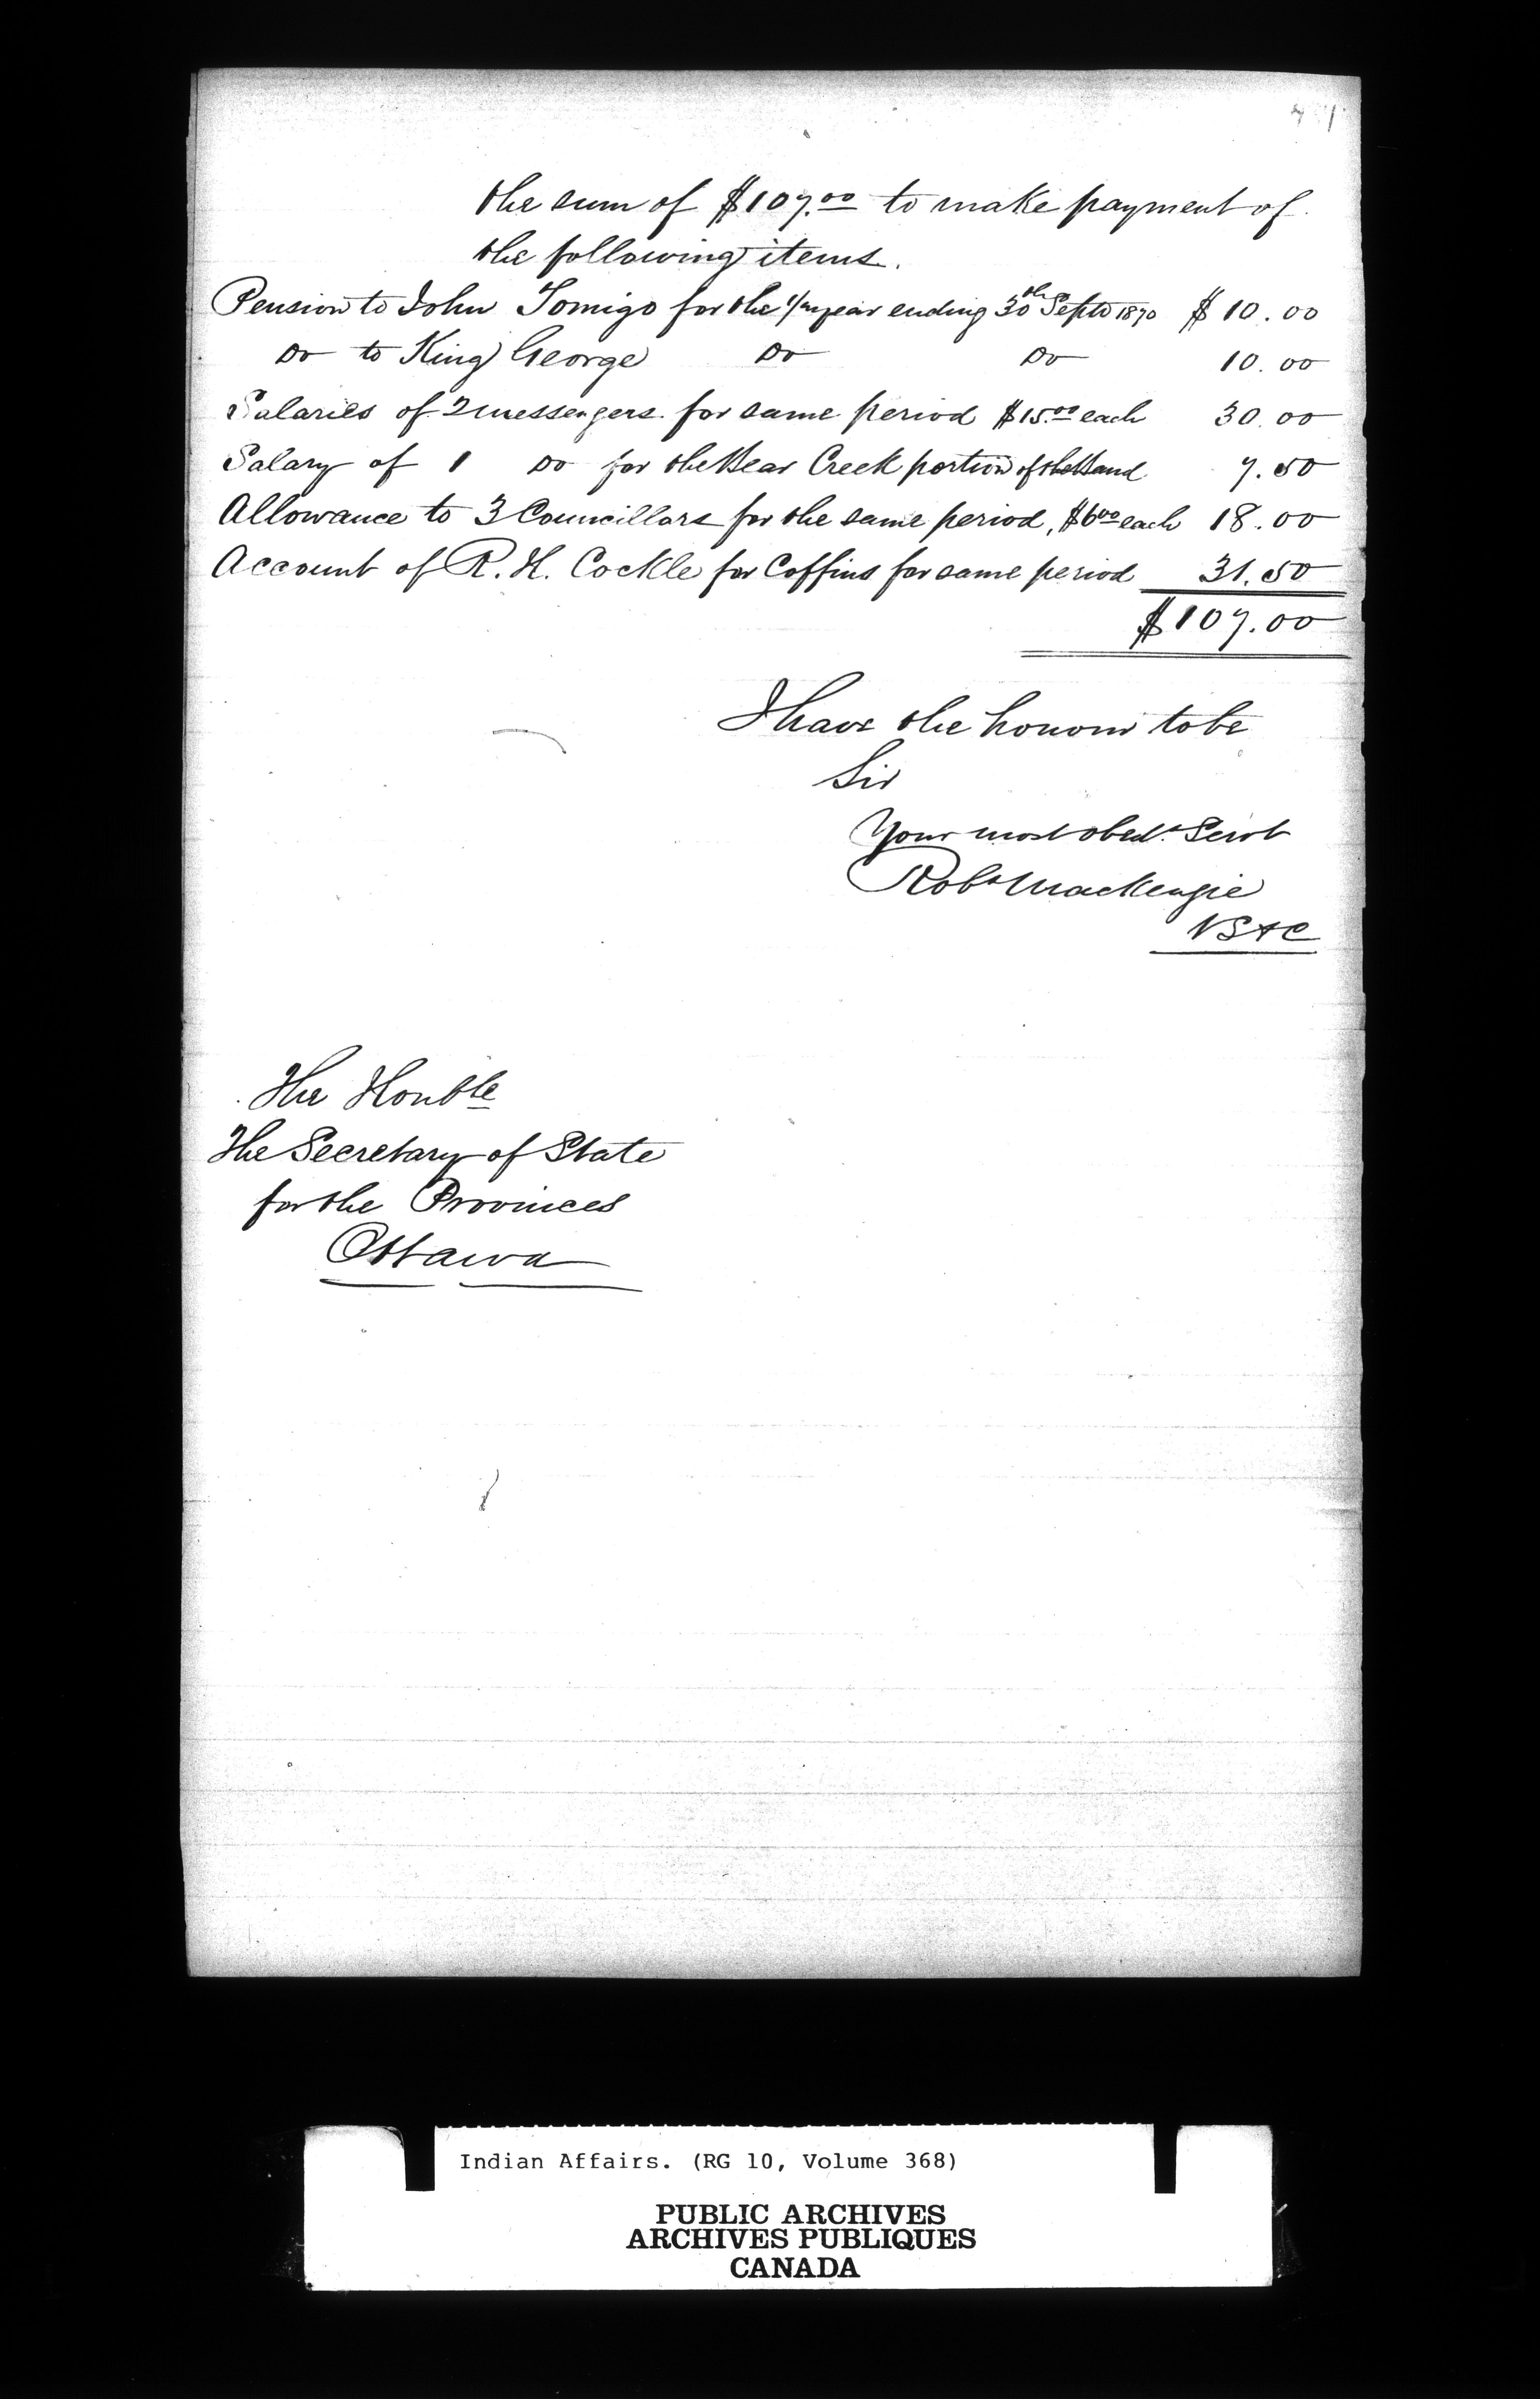 the sum of $107.00 to make payment of
the following items.
Pension to John Tomigo for the 1/2 year ending 30th Septr 1870 $10.00
Do to King George Do Do 10.00
Salaries of 2 messengers for same period $15.00 each 30.00
Salary of 1 Do for the Bear Creek portion of the Band 7.50
Allowance to 3 Councillors for the same period, $6.00 each 18.00
Account of R. H. Cockle for Coffins for same period 31.50
$107.00
I have the honour to be
Sir
Your most obedt Servt
Robt Mackenzie
VS&C
The Honble
The Secretary of State
for the Provinces
Ottawa
Indian Affairs. (RG 10, Volume 368)
PUBLIC ARCHIVES
ARCHIVES PUBLIQUES
CANADA